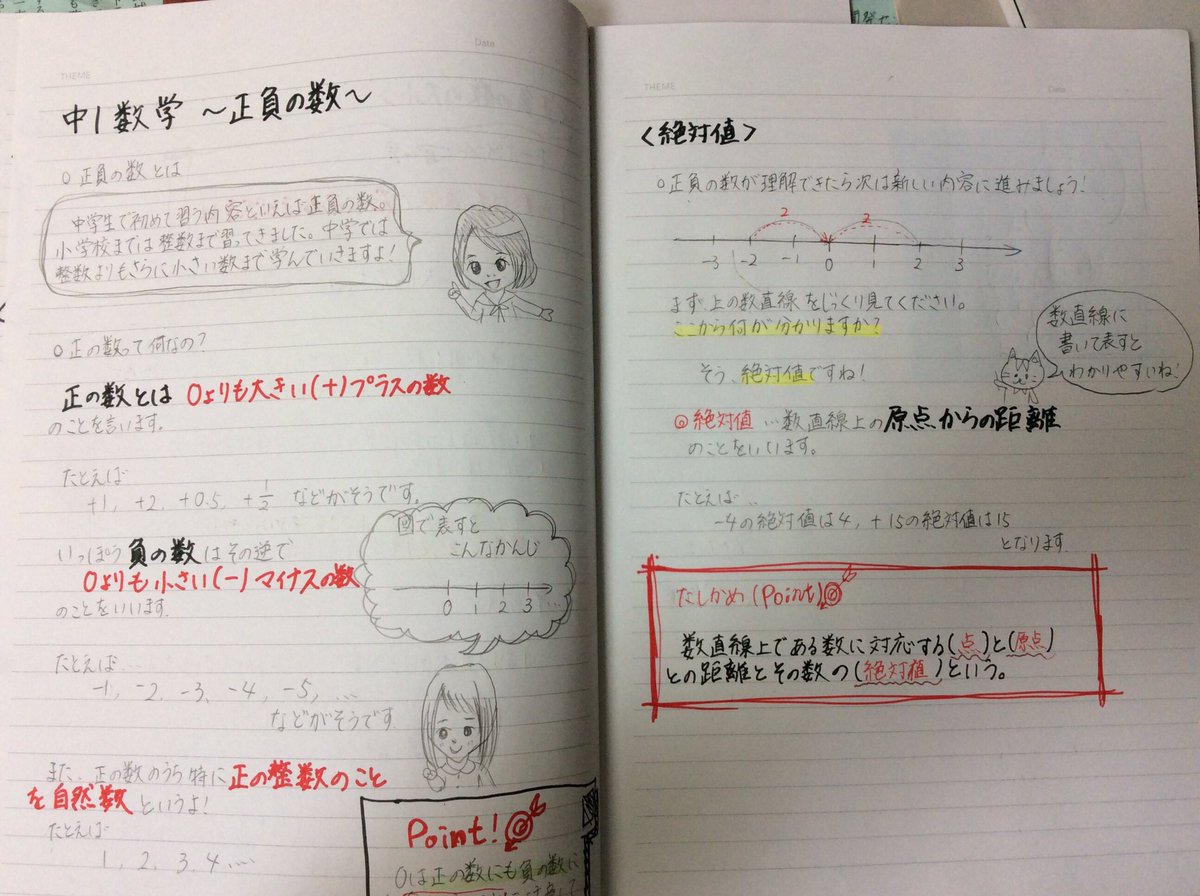 THEME
Date
中1数学 〜正負の数〜
○正負の数とは
中学生で初めて習う内容といえば正負の数。
小学校までは整数まで習ってきました。中学では
整数よりもさらに小さい数まで学んでいきますよ!
○正の数って何なの?
正の数とは 0よりも大きい(+)プラスの数
のことを言います。
たとえば
+1, +2, +0.5, +1/2 などがそうです。
いっぽう負の数はその逆で
0よりも小さい(-)マイナスの数
のことをいいます。
図で表すと
こんなかんじ
0 1 2 3 …
たとえば…
-1, -2, -3, -4, -5, …
などがそうです
また、正の数のうち特に正の整数のこと
を自然数というよ!
たとえば
1, 2, 3, 4 …
Point!
0は正の数にも負の数に
THEME
Date
<絶対値>
○正負の数が理解できたら次は新しい内容に進みましょう!
2 2
-3 -2 -1 0 1 2 3
まず上の数直線をじっくり見てください。
ここから何が分かりますか?
そう、絶対値ですね!
数直線に
書いて表すと
わかりやすいね!
◎絶対値…数直線上の原点からの距離
のことをいいます。
たとえば…
-4の絶対値は4, +15の絶対値は15
となります
たしかめ(Point)
数直線上である数に対応する(点)と(原点)
との距離とその数の(絶対値)という。